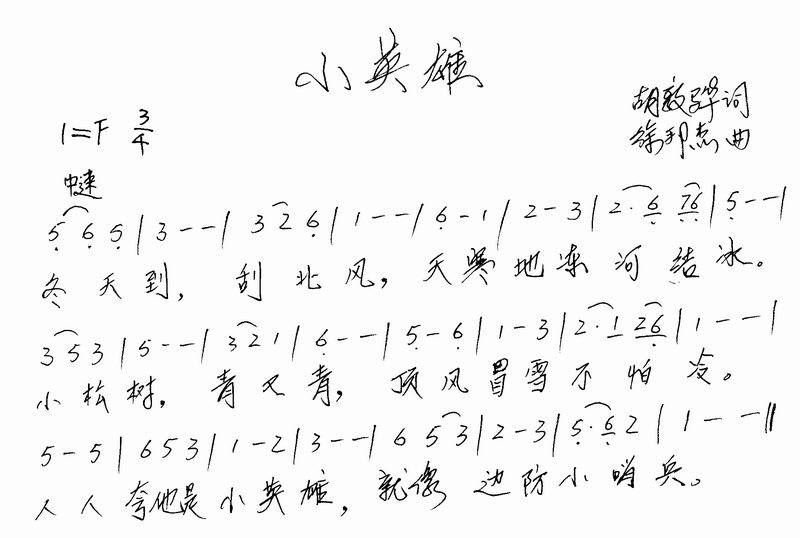 小英雄
胡敦骅词
1=F 3/4
徐邦杰曲
中速
5 6 5 | 3 - - | 3 2 6 | 1 - - | 6 - 1 | 2 - 3 | 2 · 6 76 | 5 - - |
冬天到,刮北风,天寒地冻河结冰。
3 5 3 | 5 - - | 3 2 1 | 6 - - | 5 - 6 | 1 - 3 | 2 · 1 26 | 1 - - |
小松树,青又青,顶风冒雪不怕冷。
5 - 5 | 6 5 3 | 1 - 2 | 3 - - | 6 5 3 | 2 - 3 | 5 · 6 2 | 1 - - ‖
人人夸他是小英雄,就像边防小哨兵。